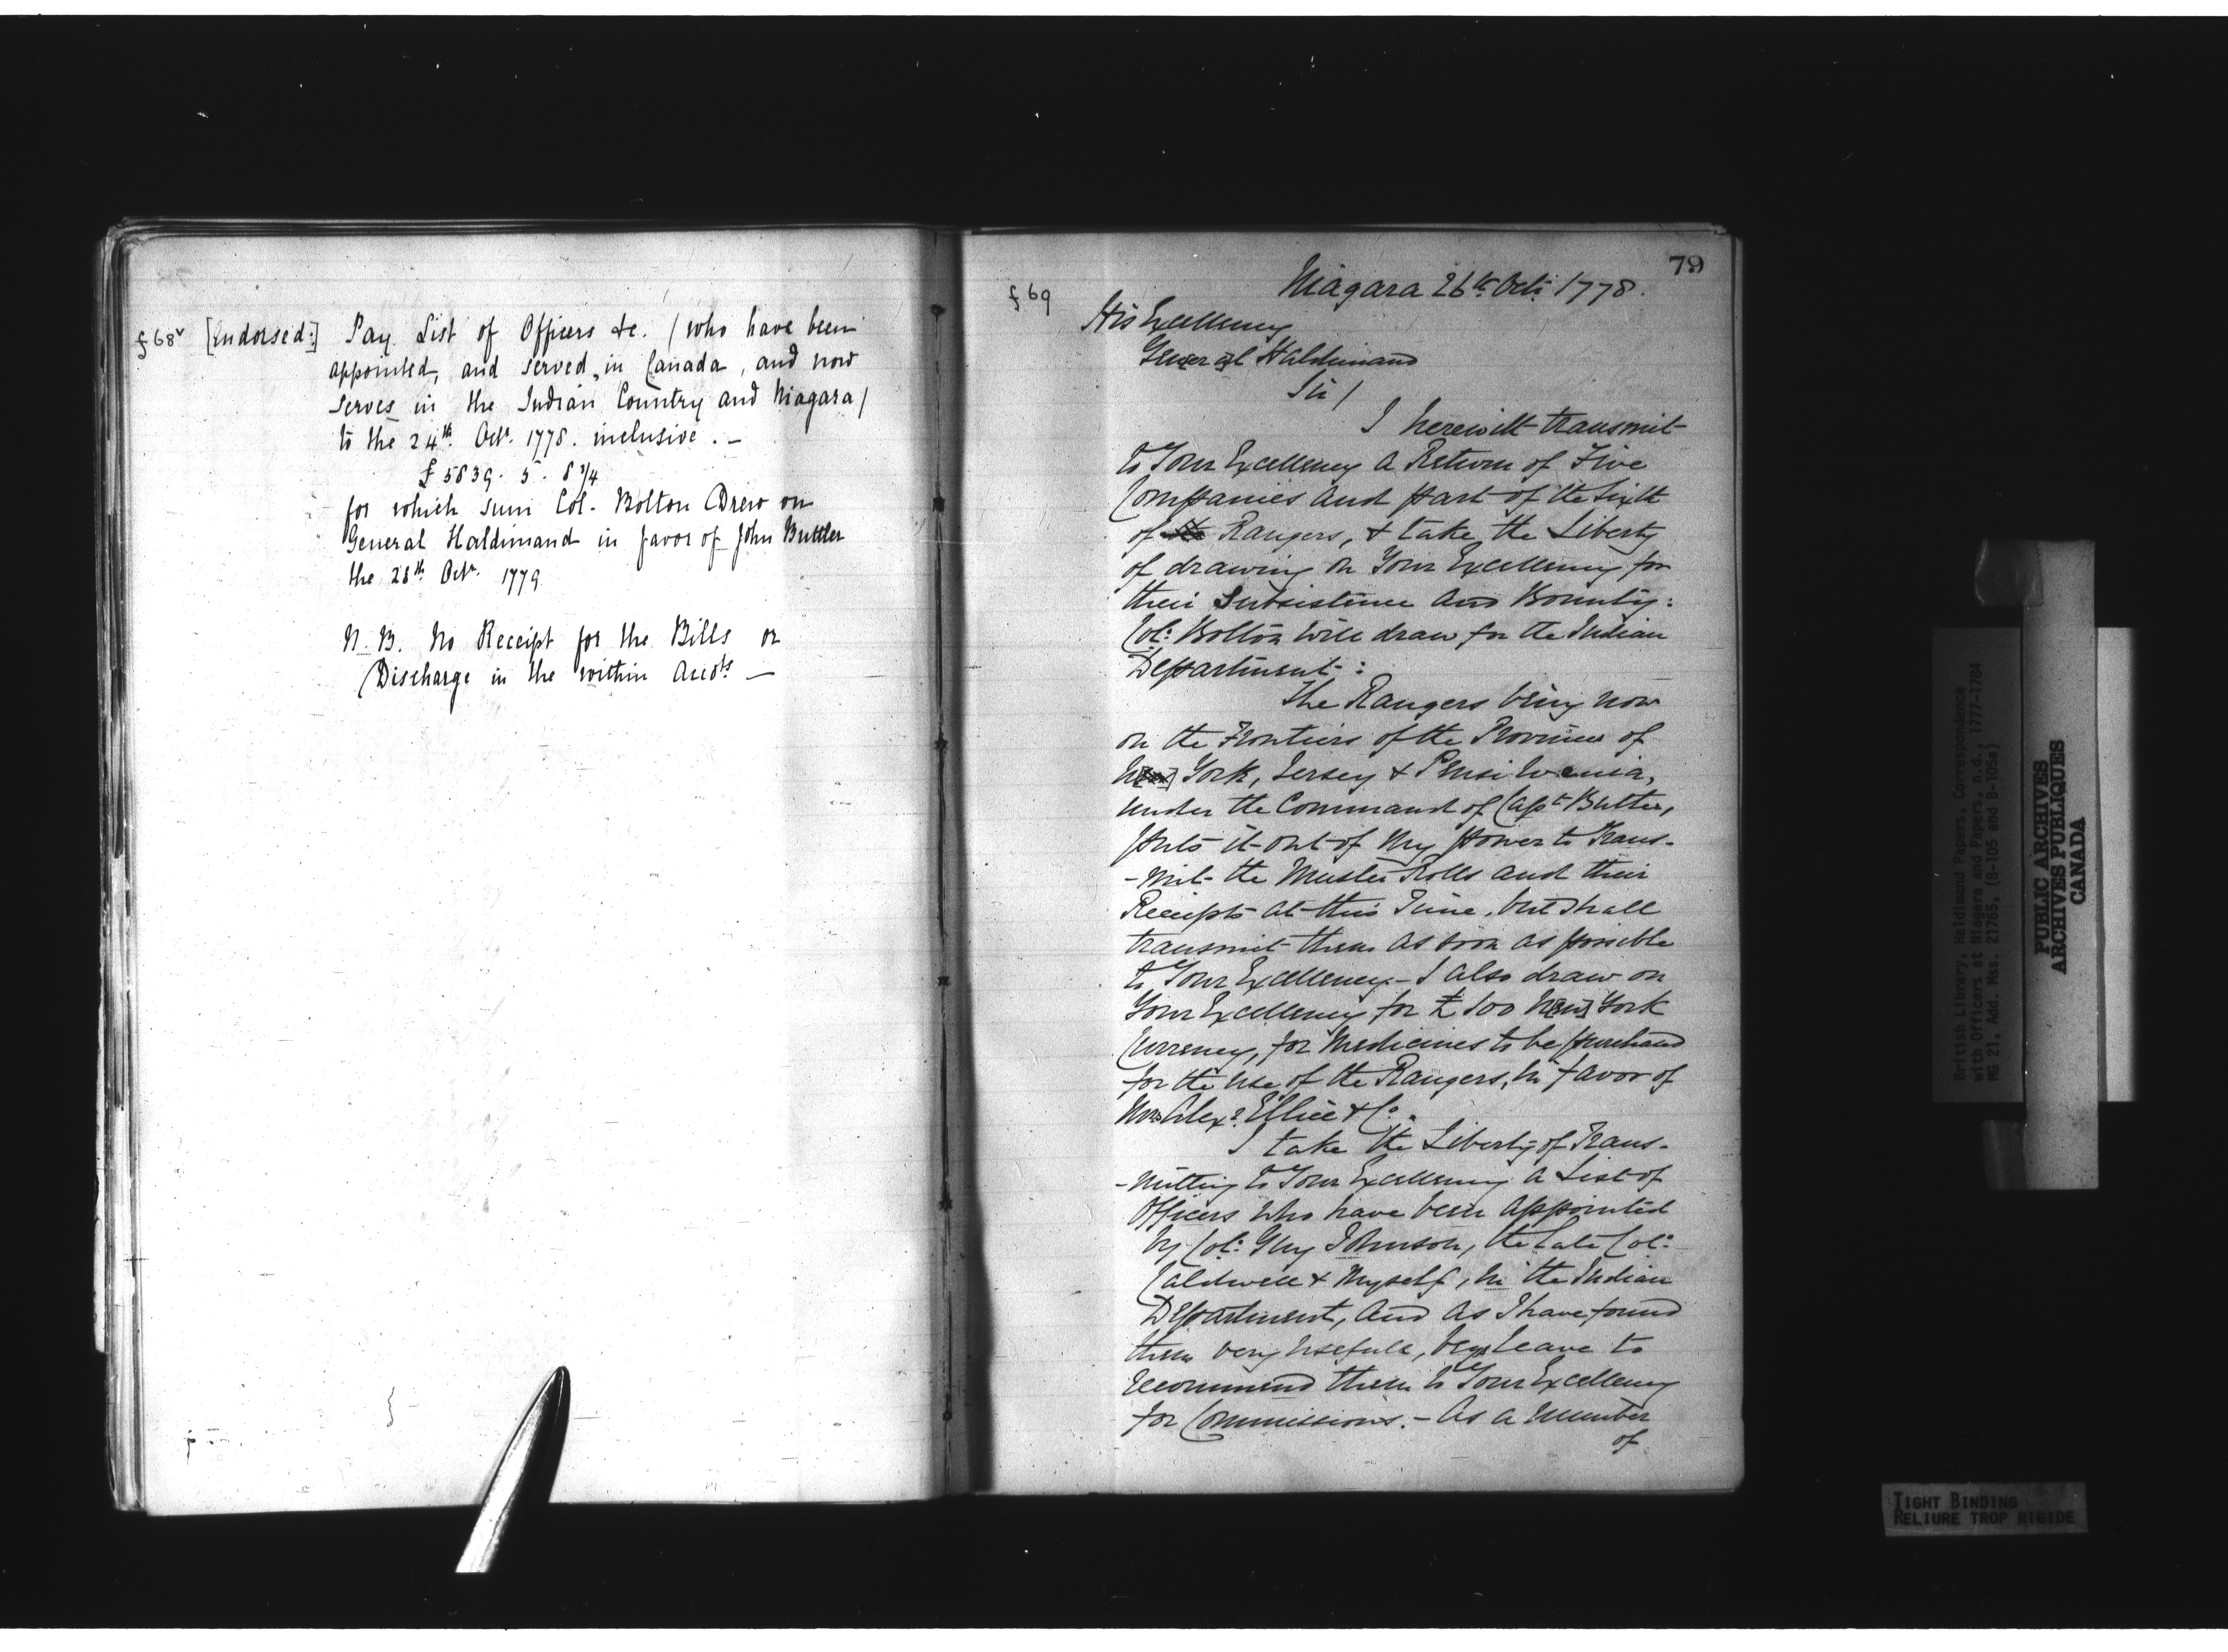 f 68v [Endorsed:] Pay List of Officers &c. / who have been
appointed, and served, in Canada, and now
serves in the Indian Country and Niagara /
to the 24th Octr. 1778. inclusive. —
£5839. 5. 8 3/4
for which sum Col. Bolton Drew on
General Haldimand in favor of John Buttler
the 28th Octr. 1779
N.B. No Receipt for the Bills or
Discharge in the within Accots. —
79
f 69
Niagara 26th Octr: 1778.
His Excellency
General Haldimand
Sir /
I herewith transmit
to Your Excellency a Return of Five
Companies and part of the Sixth
of the Rangers, & take the Liberty
of drawing on Your Excellency for
their Subsistence and Bounty:
Col: Bolton will draw for the Indian
Department:
The Rangers being now
on the Frontiers of the Provinces of
N[ew] York, Jersey & Pensilvania,
under the Command of Capt Butler,
puts it out of my power to Trans-
-mit the Muster Rolls and their
Receipts at this Time, but shall
transmit them as soon as possible
to Your Excellency — I also draw on
Your Excellency for £100 N[ew] York
Currency, for Medicines to be purchased
for the use of the Rangers, in favor of
Alexr. Ellice & Co.
I take the Liberty of Trans-
-mitting to Your Excellency a List of
Officers who have been appointed
by Col: Guy Johnson, the late Col:
Caldwell & Myself, in the Indian
Department, and as I have found
them very usefull, beg leave to
recommend them to Your Excellency
for Commissions. — As a Number
of
British Library, Haldimand Papers, Correspondence
with Officers at Niagara and Papers, n.d., 1777-1784
MG 21, Add. Mss. 21765, (B-105 and B-105a)
PUBLIC ARCHIVES
ARCHIVES PUBLIQUES
CANADA
TIGHT BINDING
RELIURE TROP RIGIDE